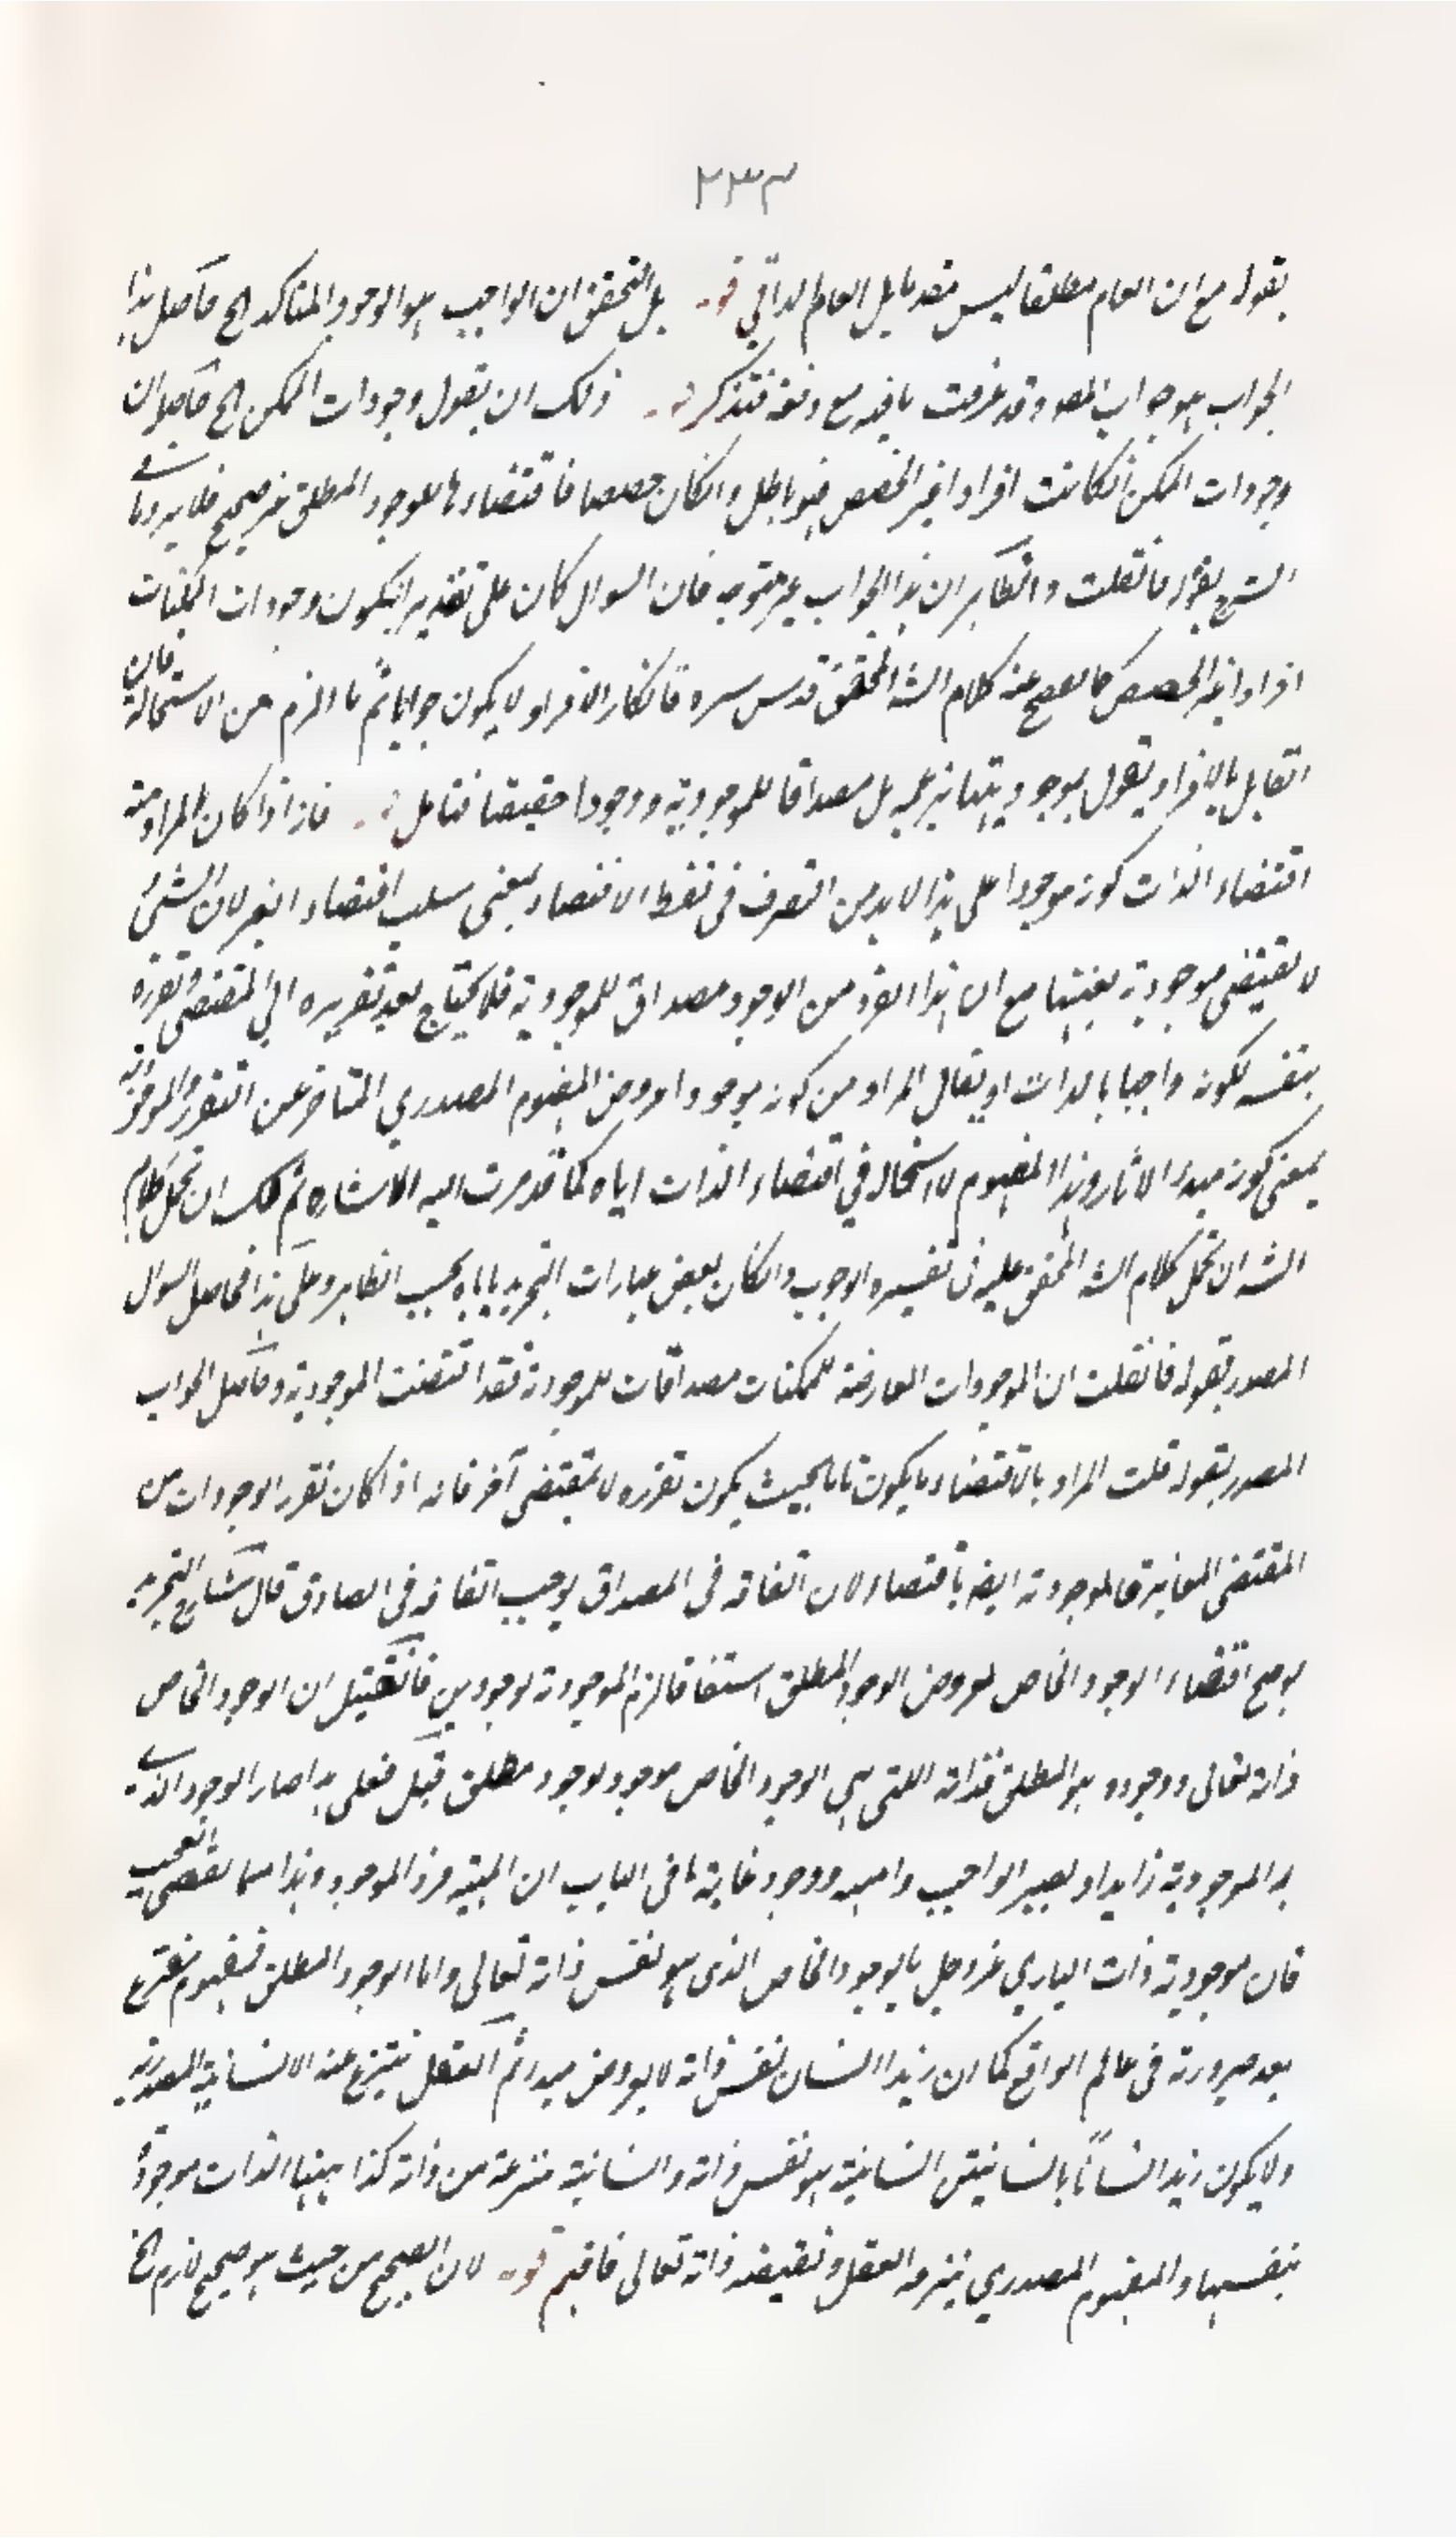 ٢٣٣
بقوله مع ان العام مطلقا ليس مقدما بل العام الذاتي قوله بل التحقيق ان الواجب هو الوجود المتاكد الخ حاصل هذا
الجواب هو جواب المصـ وقد عرفت ما فيه مع دفعه فتذكر قوله ذلك ان يقول وجودات الممكن الخ حاصله ان
وجودات الممكن انكانت افرادا غير الحصص فهو باطل وانكان حصصا فاقتضاءها للوجود المطلق غير صحيح فلا يرد ما في
الشرح بقوله فانقلت والظاهر ان هذا الجواب غير متوجه فان السوال كان على تقدير ان يكون وجودات الممكنات
افرادا غير الحصص كما يفصح عنه كلام الشـ المحقق قدس سره فانكار الافراد لا يكون جوابا ثم ما الزم من الاستحالة فان
القايل بالافراد يقول بوجود بل مصداقا للموجودية ووجودا حقيقيا فتامل قوله فاذا كان المراد منه
اقتضاء الذات كونه موجودا على هذا لا بد من التصرف فى لفظ الاقتضاء بمعنى سلب اقتضاء الغير لان الشئ
لا يقتضى موجودية بعينها مع ان هذا الفرد من الوجود مصداق للموجودية فلا يحتاج بعد تقريره الى المقتضى وتقرره
بنفسه لكونه واجبا بالذات او يقال المراد من كونه موجودا عروض المفهوم المصدري المتاخر عن التقرر والموجودية
بمعنى كونه مبدء الاثار وهذا المفهوم لا استحالة في اقتضاء الذات اياه كما قد مرت اليه الاشارة ثم لك ان تحمل كلام
الشـ ان تحمل كلام الشـ المحقق عليه فى تفسيره الوجوب وانكان بعض عبارات التجريد ياباه بحسب الظاهر وعلى هذا فحاصل السوال
المصدر بقوله فانقلت ان الموجودات العارضة للممكنات مصداقات للموجودية فقد اقتضت الموجودية وحاصل الجواب
المصدر بقوله قلت المراد بالاقتضاء ما يكون تاما بحيث يكون تقرره لا بمقتضى آخر فانه اذا كان تقرر الوجودات من
المقتضى المغاير فالموجودية ايضا باقتضاءه لان اتفاقه فى المصداق يوجب اتفاقه فى الصادق قال شارح التجريد
لو صح اقتضاء الوجود الخاص لعروض الوجود المطلق اشتقاقا لزم الموجودية لوجودين فانقيل ان الوجود الخاص
ذاته تعالى ووجوده هو المطلق فذاته اللتى هى الوجود الخاص موجود بوجود مطلق قيل فعلى هذا صار الوجود الذى
به الموجودية زايدا ويصير الواجب ذا مهية ووجود غاية ما فى الباب ان المهية فرد الموجود وهذا مما يقضى العجب
فان موجودية ذات البارى عز وجل بالوجود الخاص الذى هو نفس ذاته تعالى واما الوجود المطلق فمفهوم منتزع
بعد صيرورته فى عالم الواقع كما ان زيدا انسان بنفس ذاته لا بعروض مبدء ثم العقل ينتزع عنه الانسانية المصدرية
ولا يكون زيد انسانا بانسانيتين انسانية هو نفس ذاته وانسانية منتزعة من ذاته كذا ههنا الذات موجودة
بنفسها والمفهوم المصدري ينتزعه العقل ذاته تعالى فافهم قوله لان الصحيح من حيث هو صحيح لازم الخ